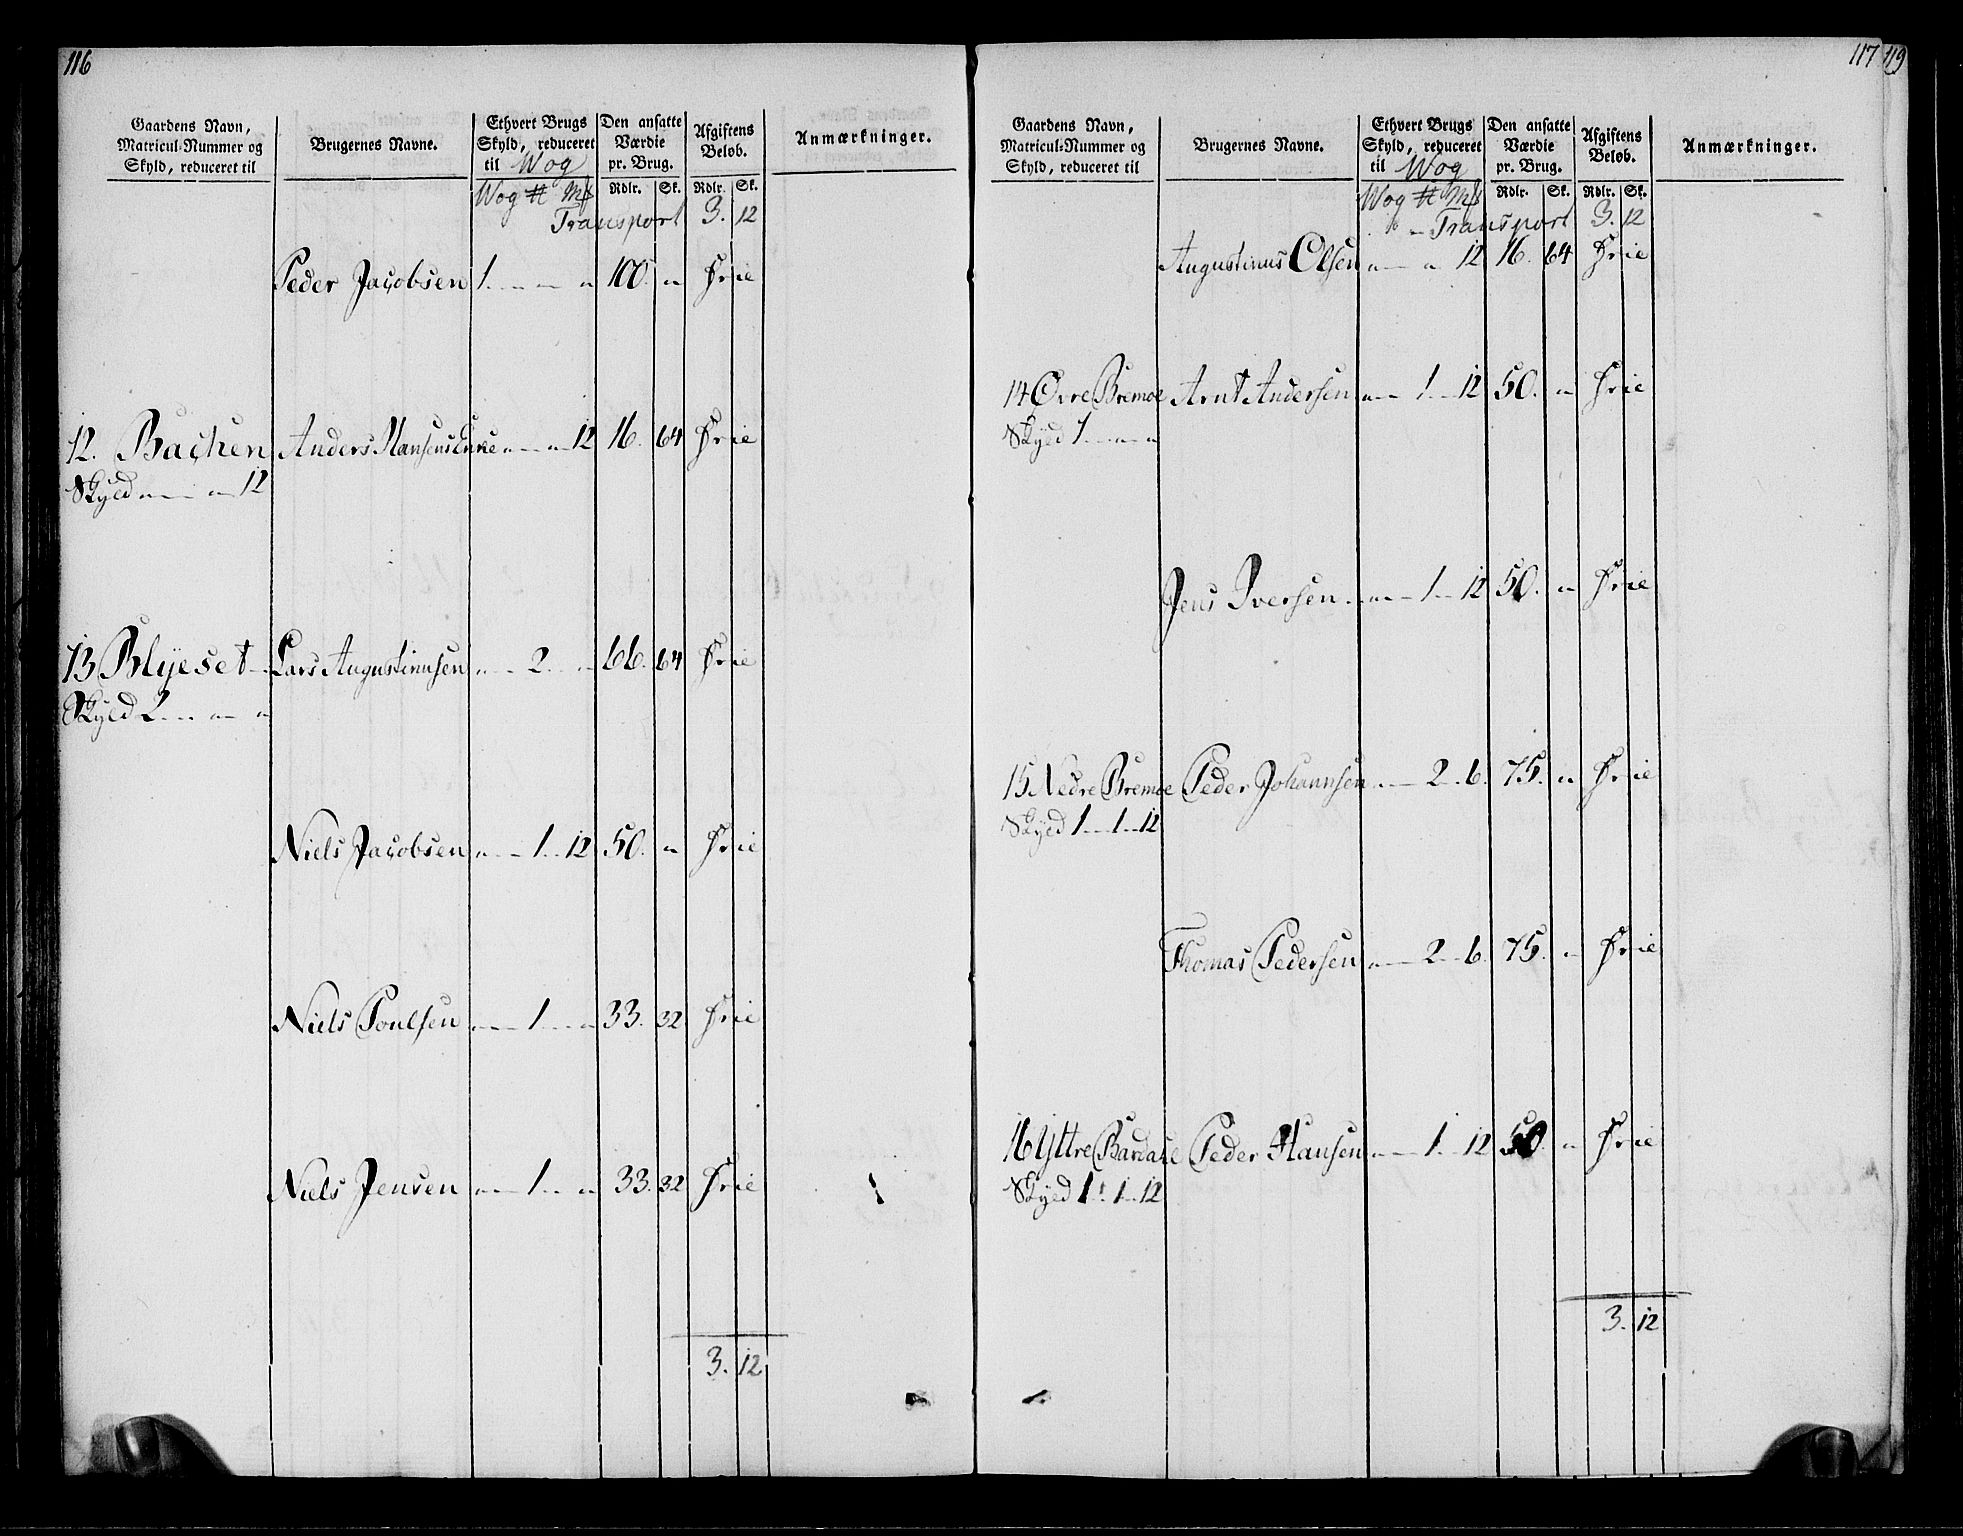 116
Gaardens Navn, Matricul-Nummer og Skyld, reduceret til | Brugernes Navne. | Ethvert Brugs Skyld, reduceret til Wog | Den ansatte Værdie pr. Brug. | Afgiftens Beløb. | Anmærkninger.
Wog # Mk | Rdlr. | Sk. | Rdlr. | Sk.
Transport 3. 12
Peder Jacobsen 1 „ „ 100. „ Frie
12. Bachen Anders Hansens Enke „ „ 12 16. 64 Frie
Skyld „ „ 12
13 Blyeset Lars Augustinusen „ 2 „ 66. 64 Frie
Skyld 2 „ „
Niels Jacobsen „ 1 12 50. „ Frie
Niels Poulsen „ 1 „ 33. 32 Frie
Niels Jensen „ 1 „ 33. 32 Frie
3. 12
117 119
Gaardens Navn, Matricul-Nummer og Skyld, reduceret til | Brugernes Navne. | Ethvert Brugs Skyld, reduceret til Wog | Den ansatte Værdie pr. Brug. | Afgiftens Beløb. | Anmærkninger.
Wog # Mk | Rdlr. | Sk. | Rdlr. | Sk.
Transport 3. 12
Augustinus Olsen „ „ 12 16. 64 Frie
14 Øvre Bremoe Arnt Andersen „ 1 12 50. „ Frie
Skyld 1 „ „
Jens Iversen „ 1 12 50. „ Frie
15 Nedre Bremoe Peder Johannsen „ 2 6. 75. „ Frie
Skyld 1 1 12
Thomas Pedersen „ 2 6. 75. „ Frie
16 Yttre Peder Hansen „ 1 12 50. „ Frie
Skyld 1 1 12
3. 12